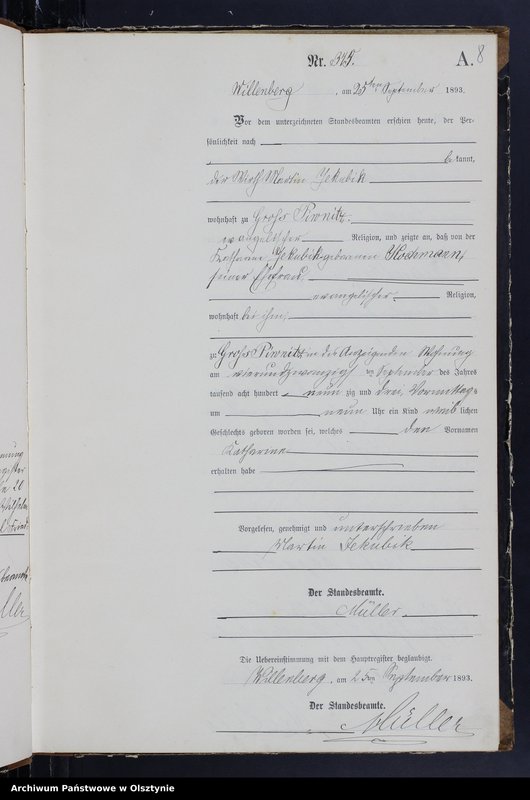 8
Nr. 345. A.
Willenberg, am 25ten September 1893.
Vor dem unterzeichneten Standesbeamten erschien heute, der Per-
sönlichkeit nach
be kannt,
der Wirth Martin Jekubik
wohnhaft zu Gross Piwnitz
evangelischer Religion, und zeigte an, daß von der
Jekubik geborenen Kochmann,
seiner Ehefrau,
evangelischer Religion,
wohnhaft bei ihm,
zu Gross Piwnitz in des Anzeigenden Wohnung
am vierundzwanzigsten September des Jahres
tausend acht hundert neun zig und drei, Vormittags
um neun Uhr ein Kind weib lichen
Geschlechts geboren worden sei, welches den Vornamen
Katharine
erhalten habe
Vorgelesen, genehmigt und unterschrieben
Martin Jekubik
Der Standesbeamte.
Müller.
Die Uebereinstimmung mit dem Hauptregister beglaubigt.
Willenberg, am 25ten September 1893.
Der Standesbeamte.
Müller
Archiwum Państwowe w Olsztynie